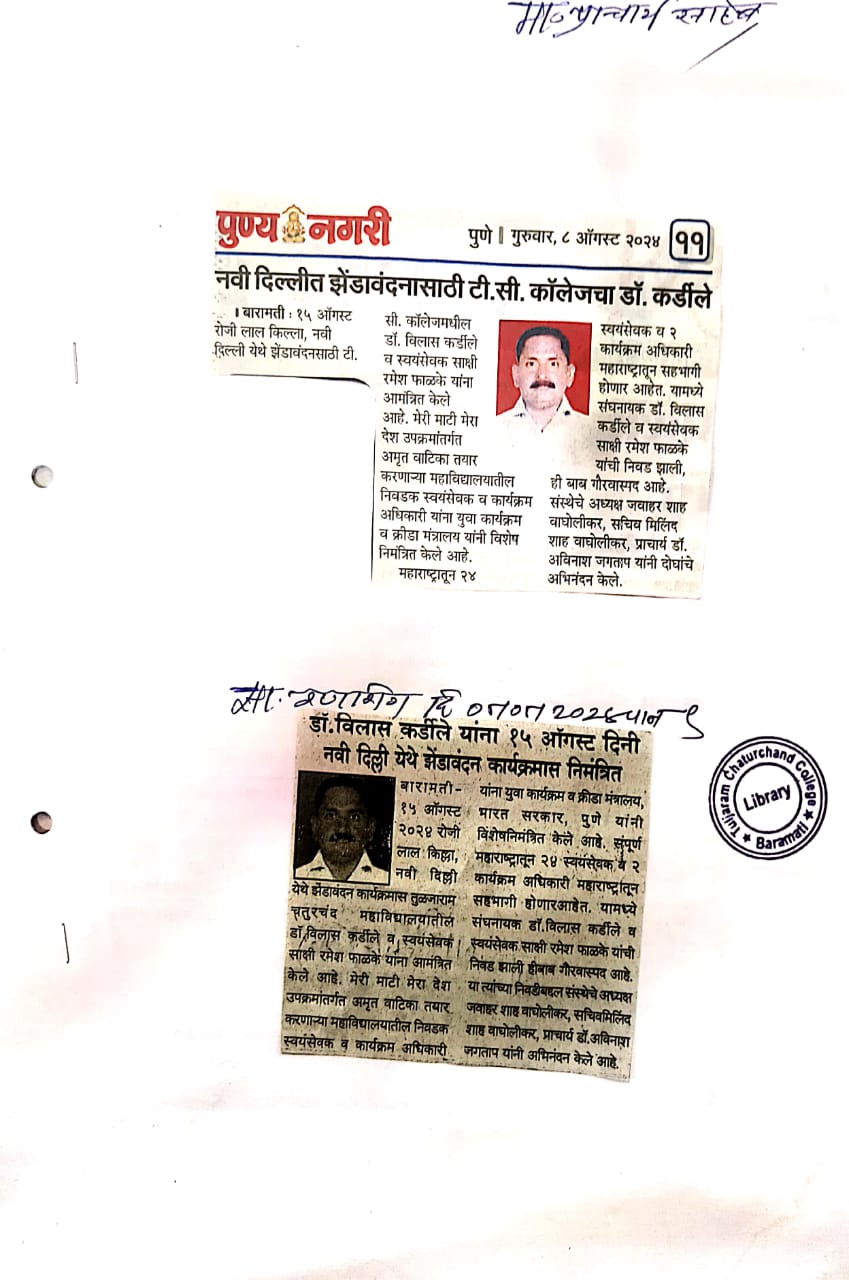 मा. प्राचार्य साहेब
पुण्य नगरी
पुणे || गुरुवार, ८ ऑगस्ट २०२४ ११
नवी दिल्लीत झेंडावंदनासाठी टी.सी. कॉलेजचा डॉ. कर्डीले
। बारामती : १५ ऑगस्ट
रोजी लाल किल्ला, नवी
दिल्ली येथे झेंडावंदनसाठी टी.
सी. कॉलेजमधील
डॉ. विलास कर्डीले
व स्वयंसेवक साक्षी
रमेश फाळके यांना
आमंत्रित केले
आहे. मेरी माटी मेरा
देश उपक्रमांतर्गत
अमृत वाटिका तयार
करणाऱ्या महाविद्यालयातील
निवडक स्वयंसेवक व कार्यक्रम
अधिकारी यांना युवा कार्यक्रम
व क्रीडा मंत्रालय यांनी विशेष
निमंत्रित केले आहे.
महाराष्ट्रातून २४
स्वयंसेवक व २
कार्यक्रम अधिकारी
महाराष्ट्रातून सहभागी
होणार आहेत. यामध्ये
संघनायक डॉ. विलास
कर्डीले व स्वयंसेवक
साक्षी रमेश फाळके
यांची निवड झाली,
ही बाब गौरवास्पद आहे.
संस्थेचे अध्यक्ष जवाहर शाह
वाघोलीकर, सचिव मिलिंद
शाह वाघोलीकर, प्राचार्य डॉ.
अविनाश जगताप यांनी दोघांचे
अभिनंदन केले.
दि ०७०८ २०२४ पान
डॉ.विलास कर्डीले यांना १५ ऑगस्ट दिनी
नवी दिल्ली येथे झेंडावंदन कार्यक्रमास निमंत्रित
बारामती-
१५ ऑगस्ट
२०२४ रोजी
लाल किल्ला,
नवी दिल्ली
येथे झेंडावंदन कार्यक्रमास तुळजाराम
चतुरचंद महाविद्यालयातील
डॉ.विलास कर्डीले व स्वयंसेवक
साक्षी रमेश फाळके यांना आमंत्रित
केले आहे. मेरी माटी मेरा देश
उपक्रमांतर्गत अमृत वाटिका तयार
करणाऱ्या महाविद्यालयातील निवडक
स्वयंसेवक व कार्यक्रम अधिकारी
यांना युवा कार्यक्रम व क्रीडा मंत्रालय,
भारत सरकार, पुणे यांनी
विशेषनिमंत्रित केले आहे. संपूर्ण
महाराष्ट्रातून २४ स्वयंसेवक व २
कार्यक्रम अधिकारी महाराष्ट्रातून
सहभागी होणारआहेत. यामध्ये
संघनायक डॉ.विलास कर्डीले व
स्वयंसेवक साक्षी रमेश फाळके यांची
निवड झाली हीबाब गौरवास्पद आहे.
या त्यांच्या निवडीबद्दल संस्थेचे अध्यक्ष
जवाहर शाह वाघोलीकर, सचिवमिलिंद
शाह वाघोलीकर, प्राचार्य डॉ.अविनाश
जगताप यांनी अभिनंदन केले आहे.
Tuljaram Chaturchand College
Library
★ Baramati ★